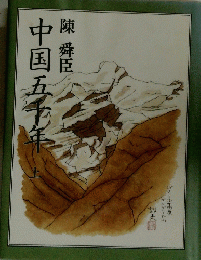 陳 舜臣
中国五千年 上